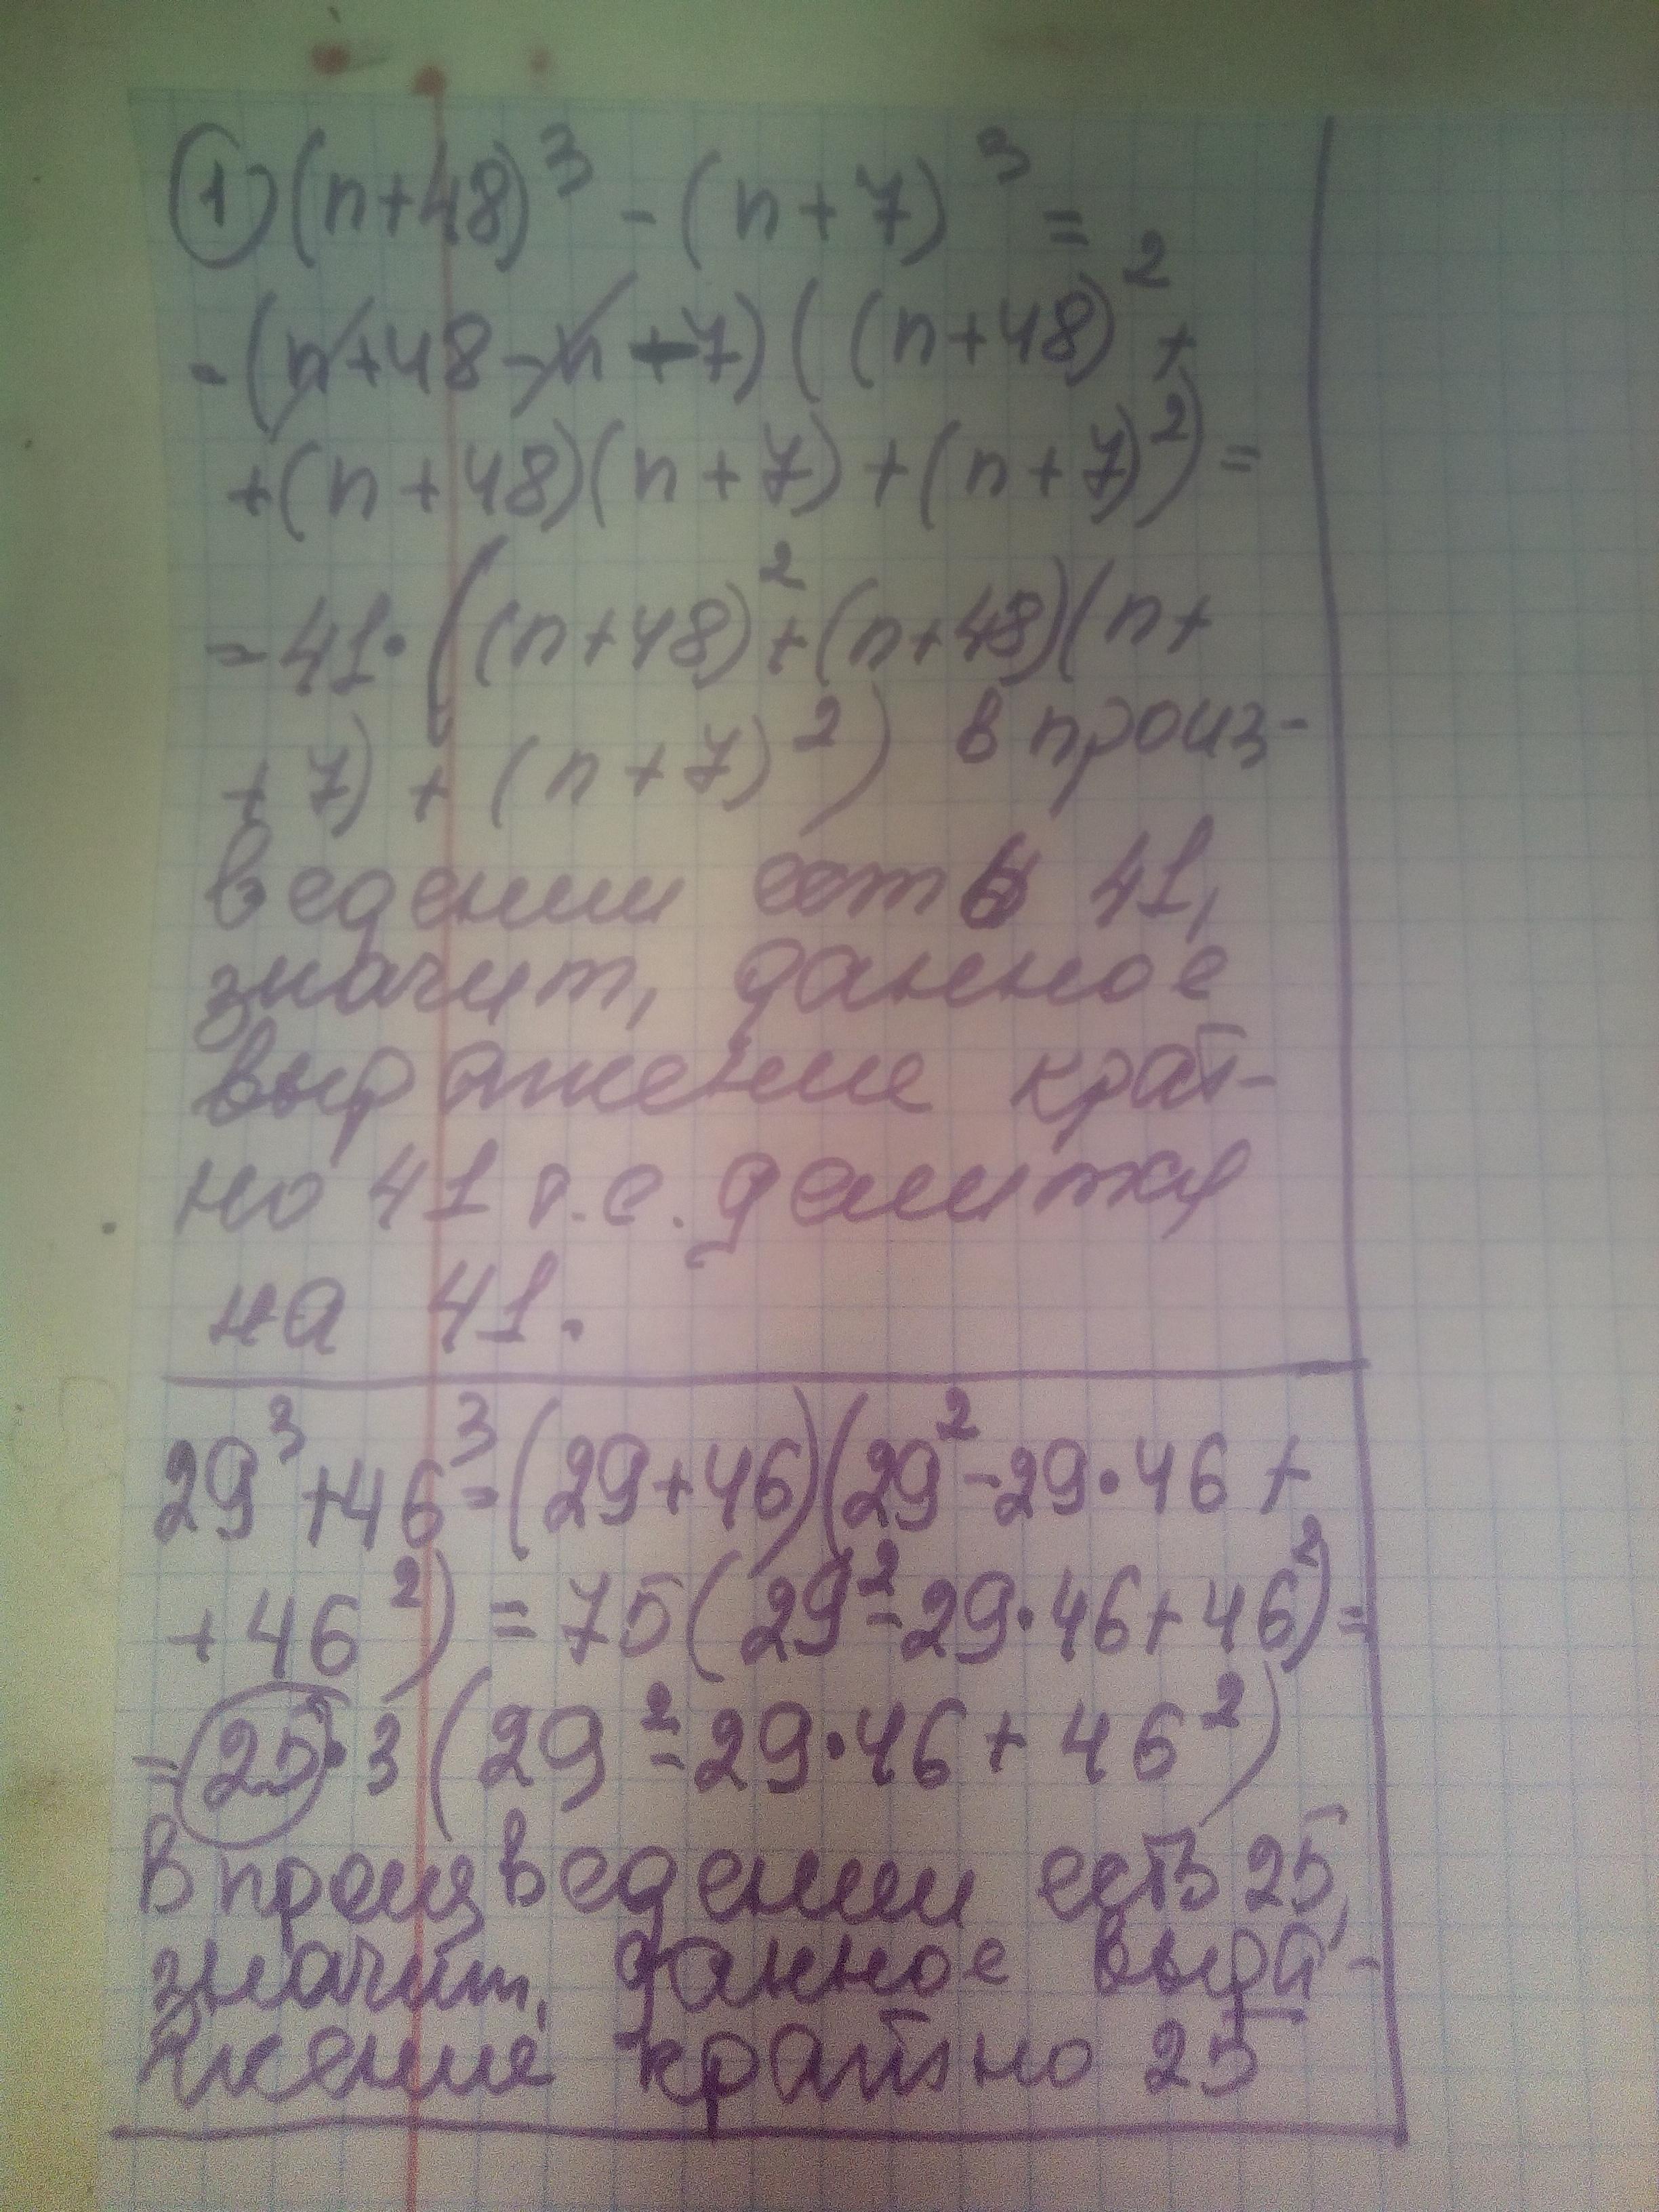 ① (n+48)³ - (n+7)³ =
= (n+48-n-7)((n+48)² +
+(n+48)(n+7)+(n+7)²) =
= 41·((n+48)²+(n+48)(n+
+7)+(n+7)²) в произ-
ведении есть 41,
значит, данное
выражение крат-
но 41 т.е. делится
на 41.
29³+46³=(29+46)(29²-29·46+
+46²) = 75(29²-29·46+46²)=
=25·3(29²-29·46+46²)
В произведении есть 25,
значит, данное выра-
жение кратно 25